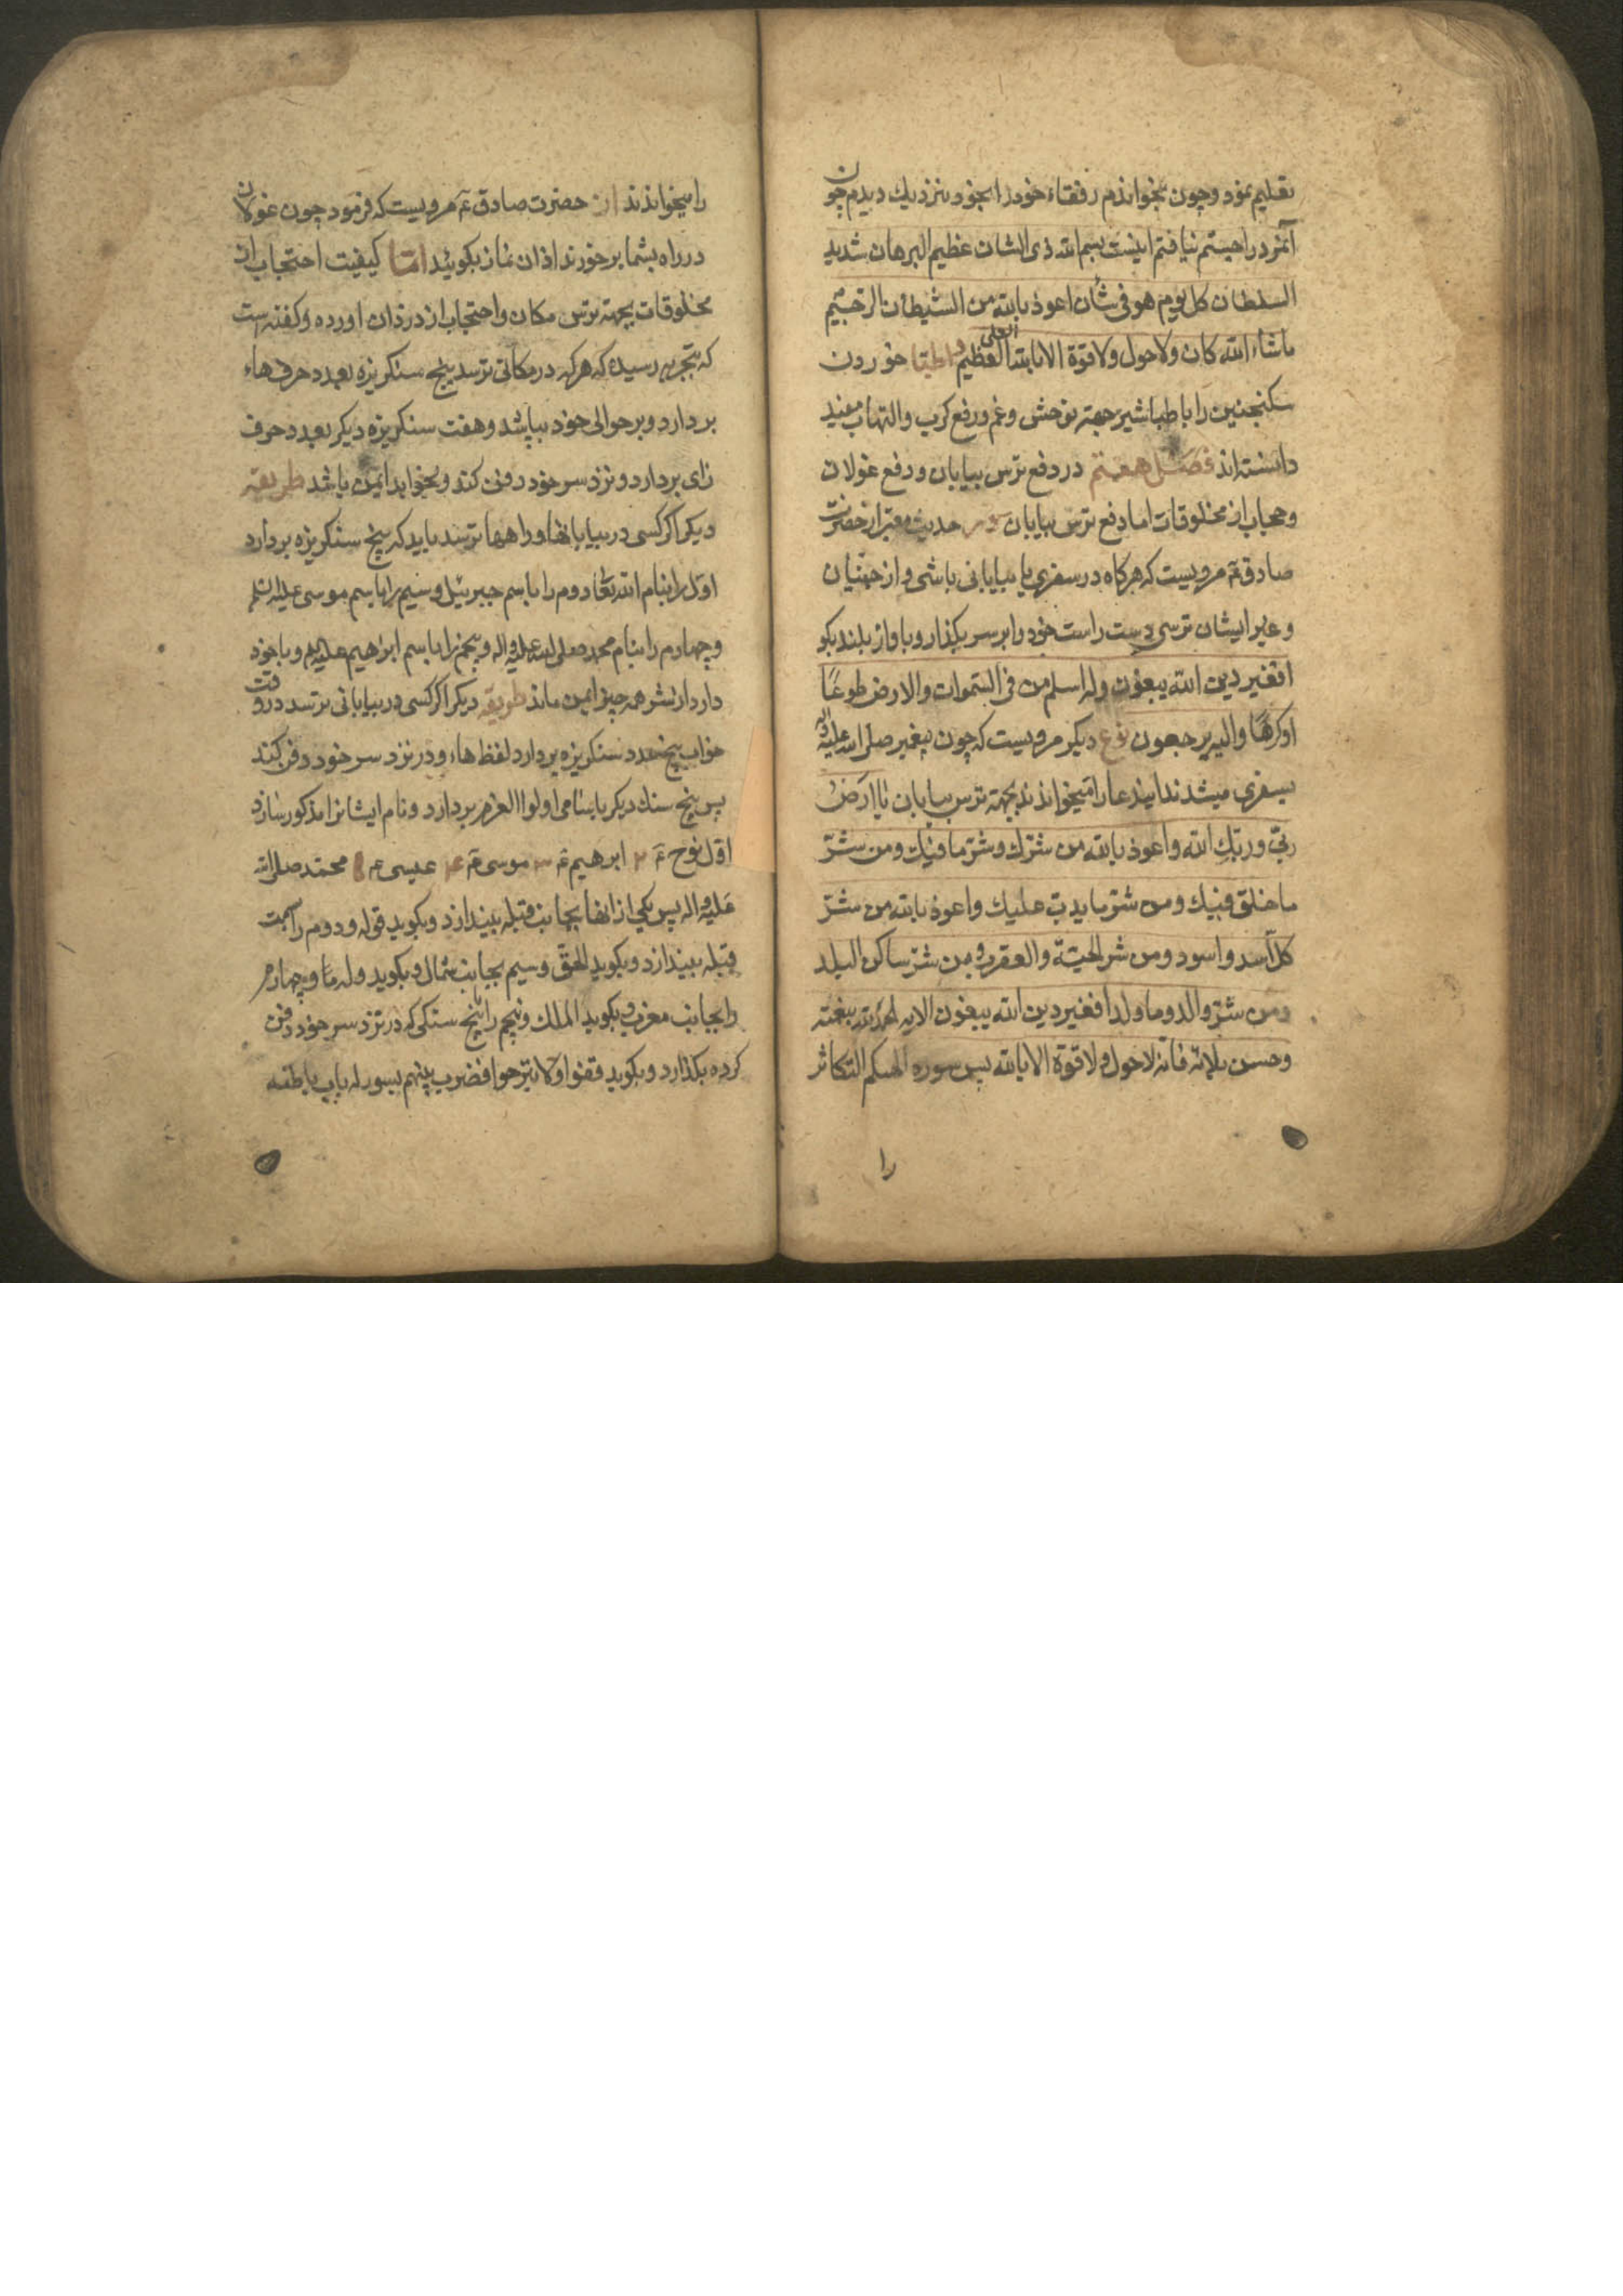 تعلیم نمود و چون بخواندم رفقاء خود را بخود نزدیك دیدم چون
آنمرد را جستم نیافتم اینست بسم الله ذی الشان عظیم البرهان شدید
السلطان کل یوم هو فی شأن اعوذ بالله من الشیطان الرجیم
ماشاء الله کان ولا حول ولا قوة الا بالله العلی العظیم و اطبا خوردن
سکنجبین را با طباشیر جهته توحش و غم و رفع کرب و التهاب مفید
دانسته اند فصل هفتم در دفع ترس بیابان و رفع غولان
و حجاب از مخلوقات اما دفع ترس بیابان در حدیث معتبر از حضرت
صادق ع مرویست که هر کاه در سفری یا بیابانی باشی و از جنیان
و غیر ایشان ترسی دست راست خود را بر سر بکذار و باواز بلند بکو
افغیر دین الله یبغون وله اسلم من فی السموات والارض طوعًا
او کرهًا والیه یرجعون نوع دیکر مرویست که چون پیغمبر صلی الله علیه واله
بسفری میشدند ایندعا را میخواندند بجهته ترس بیابان یا ارض
ربی و ربك الله واعوذ بالله من شرّك وشرّ ما فیك ومن شرّ
ما خلق فیك ومن شرّ ما یدبّ علیك واعوذ بالله من شرّ
کل اسد واسود ومن شر الحیّة والعقرب ومن شرّ ساکن البلد
ومن شرّ والد وما ولد افغیر دین الله یبغون الایه الحمد لله بنعمته
وحسن بلائه فانه لا حول ولا قوة الا بالله پس سوره الهیکم التکاثر
را
را میخواندند از حضرت صادق ع مرویست که فرمود چون غولان
در راه بشما برخورند اذان نماز بکوئید امّا کیفیت احتجاب از
مخلوقات بجهته ترس مکان و احتجاب از دزدان اورده و کفته است
که بتجربه رسیده که هر که در مکانی ترسد پنج سنکریزه بعدد حرف هاء
بردارد و بر حوالی خود بپاشد و هفت سنکریزه دیکر بعدد حرف
زای بردارد و نزد سر خود دفن کند و بخوابد ایمن باشد طریقه
دیکر اکر کسی در بیابانها و راهها ترسد باید که پنج سنکریزه بردارد
اوّل را بنام الله تعا دوم را باسم جبرئیل و سیم را باسم موسی علیه السلم
و چهارم را بنام محمد صلی الله علیه واله و پنجم را باسم ابراهیم علیه السلم و با خود
دارد از شر همه چیز ایمن ماند طریقه دیکر اکر کسی در بیابانی ترسد در وقت
خواب پنج عدد سنکریزه بردارد لفظ هاء و در نزد سر خود دفن کند
پس پنج سنك دیکر باسامی اولوا العزم بردارد و نام ایشانرا مذکور سازد
اوّل نوح ع ۲ ابرهیم ع ۳ موسی ع ۴ عیسی ع ۵ محمّد صلی الله
علیه واله پس یکی از انها بجانب قبله بیندازد و بکوید قوله و دوم را بسمت
قبله بیندازد و بکوید الحقّ و سیم بجانب شمال و بکوید وله مّا و چهارم
را بجانب مغرب و بکوید الملك و پنجم را پنج سنکی که در نزد سر خود دفن
کرده بکذارد و بکوید قفوا ولا تبرحوا فضرب بینهم بسور له باب باطنه